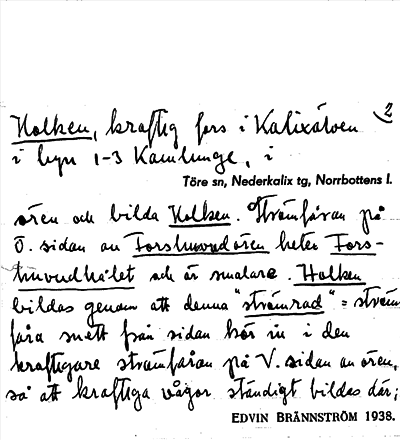 2
Holken, kraftig fors i Kalixälven
i byn 1-3 Kamlunge, i
Töre sn, Nederkalix tg, Norrbottens l.
ören och bilda Holken. Strömfåran på
Ö. sidan an Forshuvudören heter Fors-
huvudhålet och är smalare. Holken
bildas genom att denna "strömrad" = ström
fåra snett från sidan kör in i den
kraftigare strömfåran på V. sidan an ören,
så att kraftiga vågor ständigt bildas där;
EDVIN BRÄNNSTRÖM 1938.